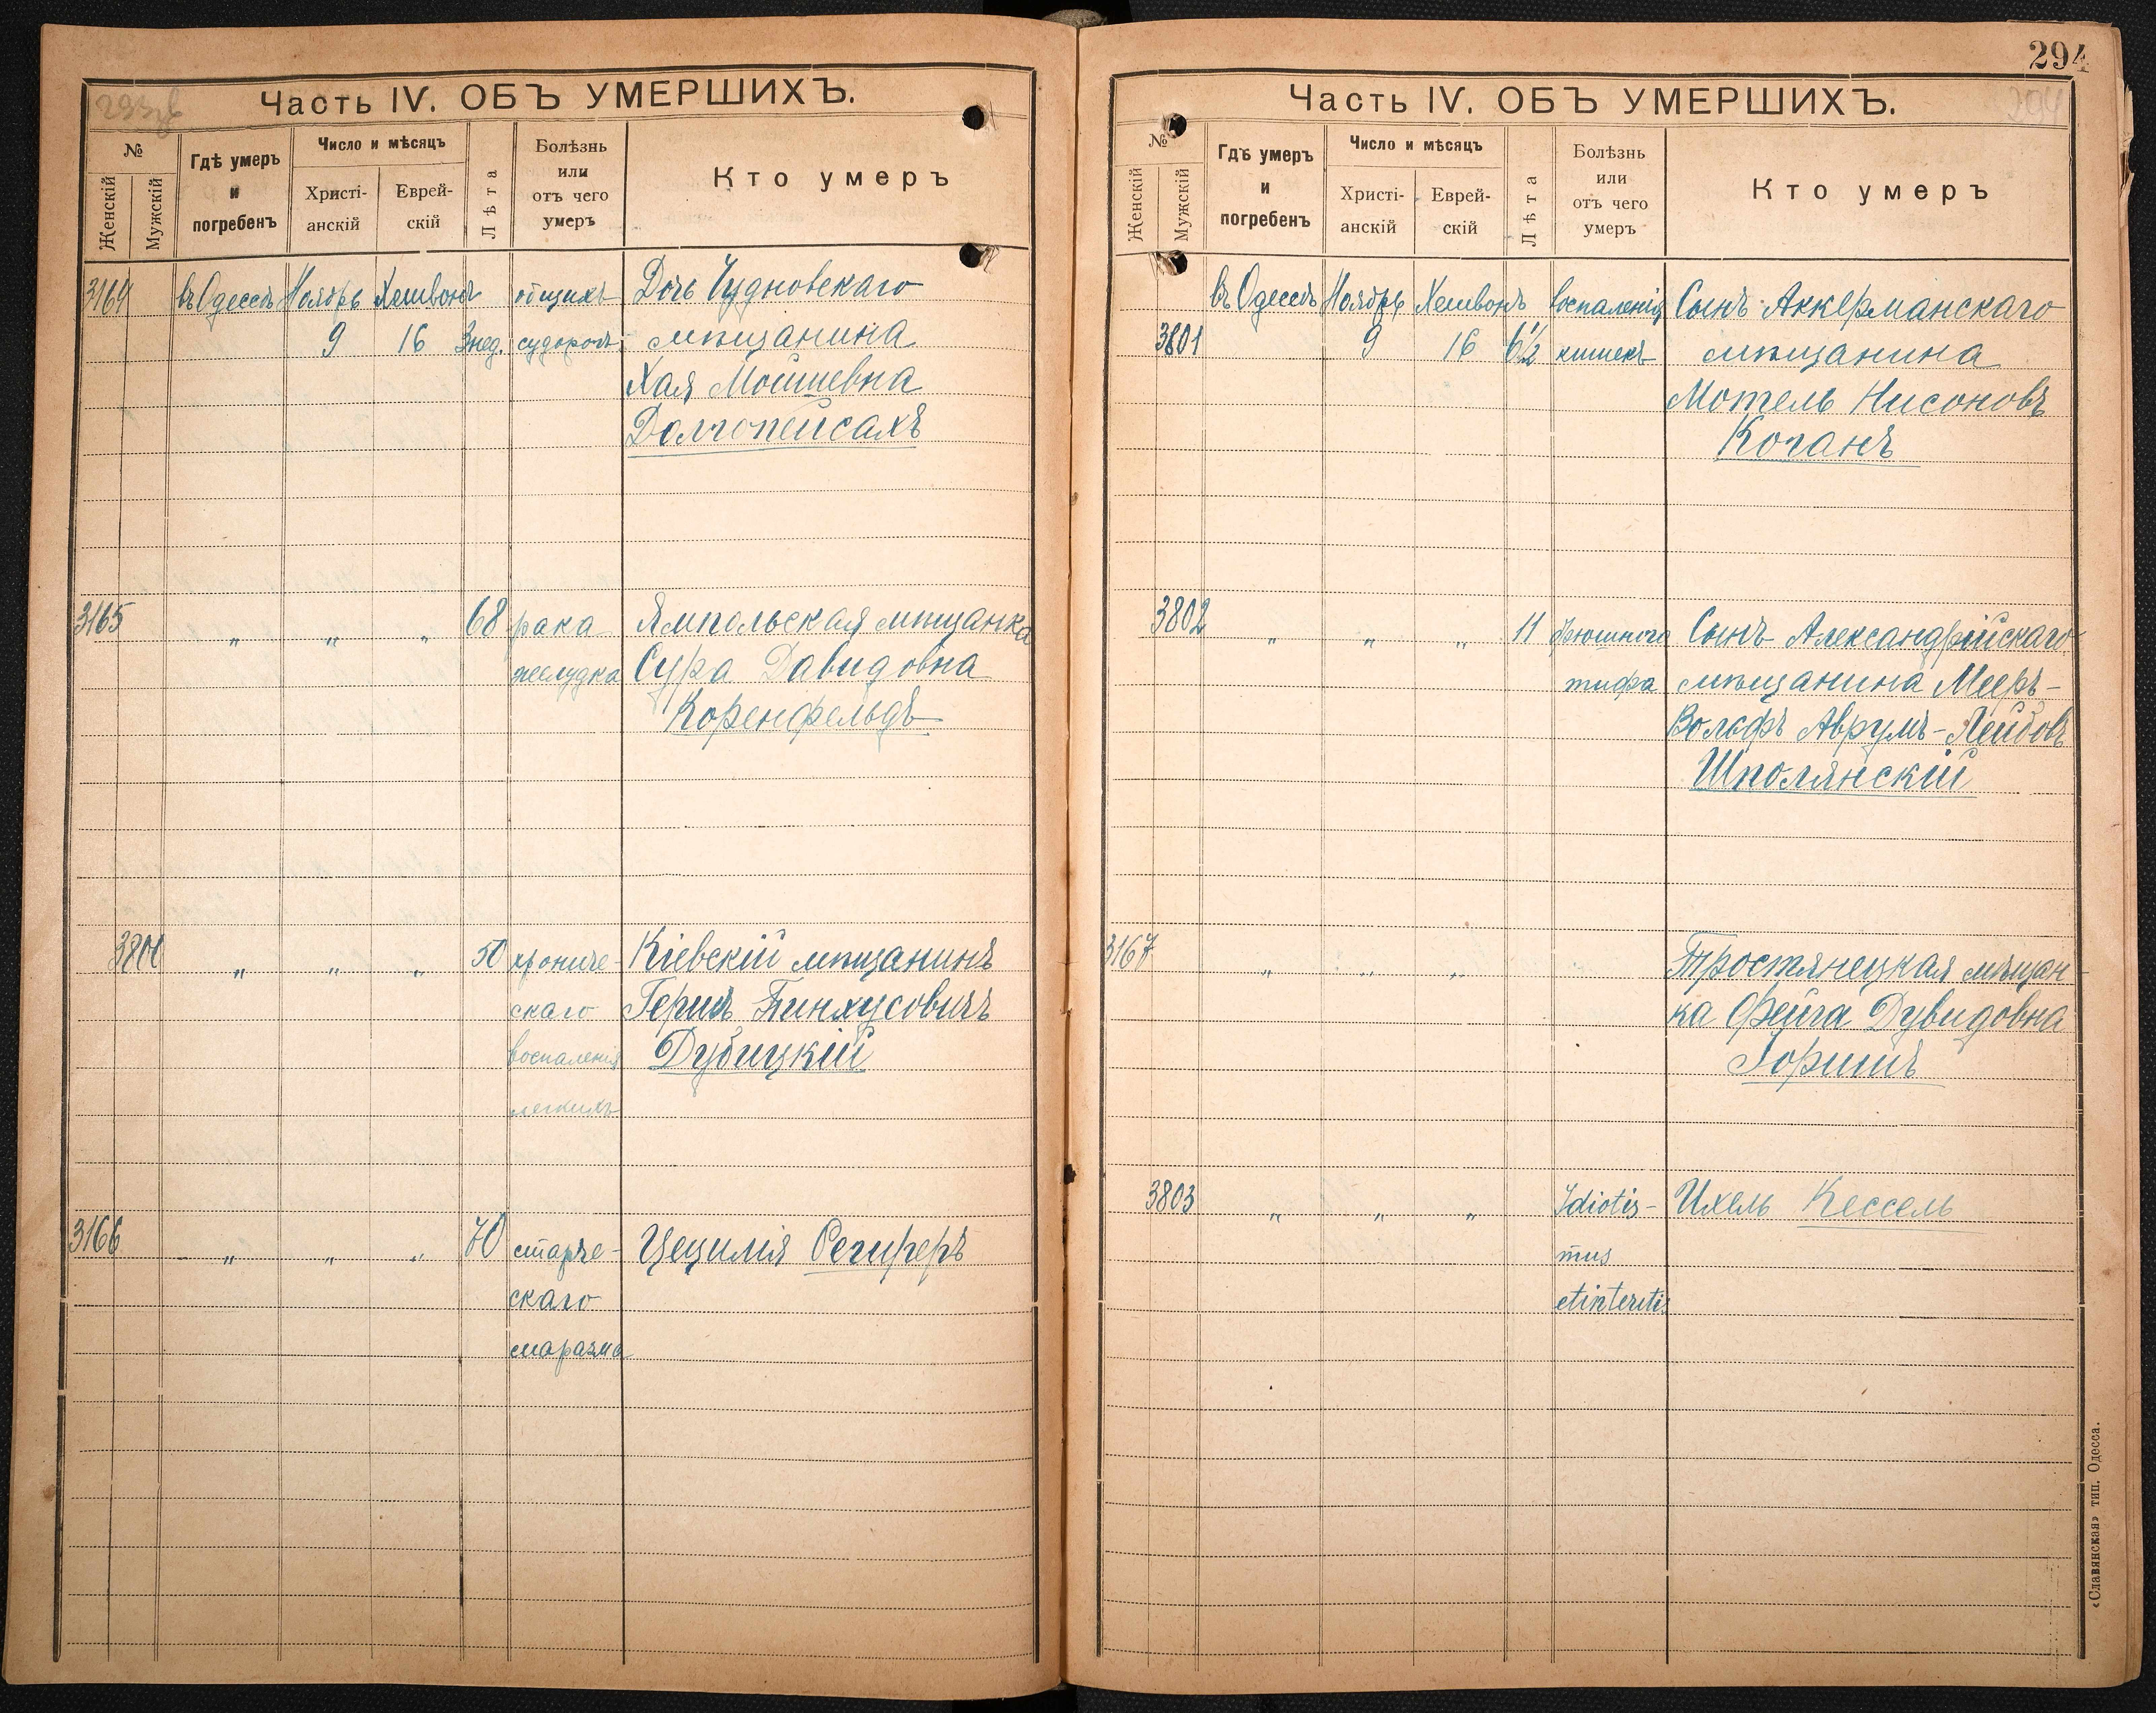 293 об
Часть IV. ОБЪ УМЕРШИХЪ.
№
Женскій
Мужскій
Гдѣ умеръ
и
погребенъ
Число и мѣсяцъ
Христі-
анскій
Еврей-
скій
Лѣта
Болѣзнь
или
отъ чего
умеръ
Кто умеръ
3164 въ Одессѣ Ноябрь Хешвонъ общихъ Дочь Чудновскаго
9 16 3 нед. судорогъ мѣщанина
Хая Мошиевна
Долгопейсахъ
3165 " " " 68 рака Ямпольская мѣщанка
желудка Сура Давидовна
Коренфельдъ
3800 " " " 50 хрониче- Кіевскій мѣщанинъ
скаго Гершъ Пинхусовичъ
воспаленія Дубицкій
легкихъ
3166 " " " 70 старче- Цецилія Региреръ
скаго
маразма
294
294
Часть IV. ОБЪ УМЕРШИХЪ.
№
Женскій
Мужскій
Гдѣ умеръ
и
погребенъ
Число и мѣсяцъ
Христі-
анскій
Еврей-
скій
Лѣта
Болѣзнь
или
отъ чего
умеръ
Кто умеръ
въ Одессѣ Ноябрь Хешвонъ воспаленія Сынъ Аккерманскаго
3801 9 16 6½ кишекъ мѣщанина
Мотель Нисоновъ
Коганъ
3802 " " " 11 брюшного Сынъ Александрійскаго
тифа мѣщанина Мееръ-
Вольфъ Аврумъ-Лейбовъ
Шполянскій
3167 " " " Тростянецкая мѣщан-
ка Фейга Дувидовна
Горишъ
3803 " " " Idiotis- Ихель Кессель
mus
et interitis
«Славянская» тип. Одесса.